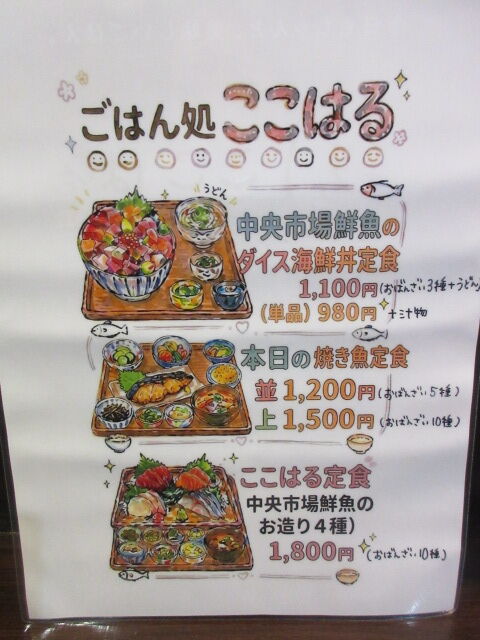 ごはん処 ここはる
うどん
中央市場鮮魚の
ダイス海鮮丼定食
1,100円(おばんざい3種+うどん)
(単品) 980円 +汁物
本日の焼き魚定食
並1,200円(おばんざい5種)
上1,500円(おばんざい10種)
ここはる定食
中央市場鮮魚の
お造り4種)
1,800円(おばんざい10種)